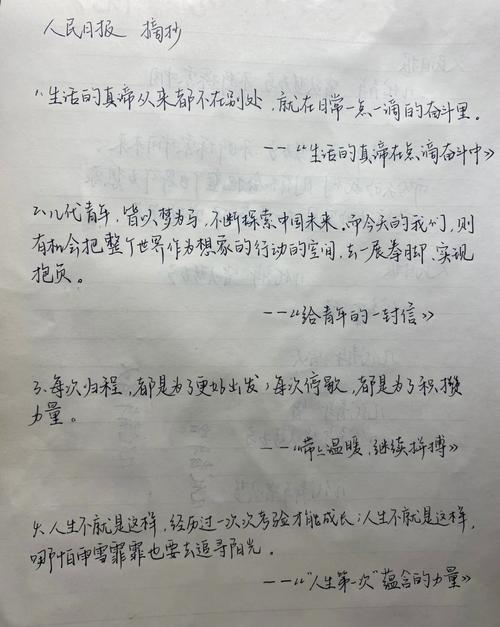 人民日报 摘抄
1、生活的真谛从来都不在别处，就在日常一点一滴的奋斗里。
——《生活的真谛在点滴奋斗中》
2、几代青年，皆以梦为马，不断探索中国未来，而今天的我们，则
有机会把整个世界作为想家的行动的空间，去一展拳脚、实现
抱负。
——《给青年的一封信》
3、每次归程，都是为了更好出发；每次停歇，都是为了积攒
力量。
——《带上温暖，继续拼搏》
4、人生不就是这样，经历过一次次考验才能成长；人生不就是这样，
哪怕雨雪霏霏也要去追寻阳光。
——《“人生第一次”蕴含的力量》